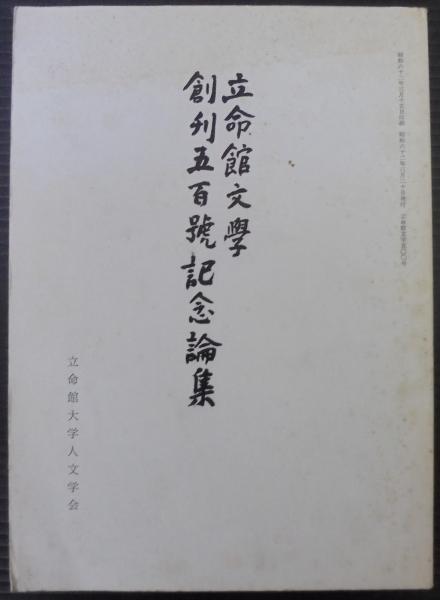 昭和六十二年三月十五日印刷 昭和六十二年三月二十日発行 立命館文学五〇〇号
立命館文學
創刊五百號記念論集
立命館大学人文学会